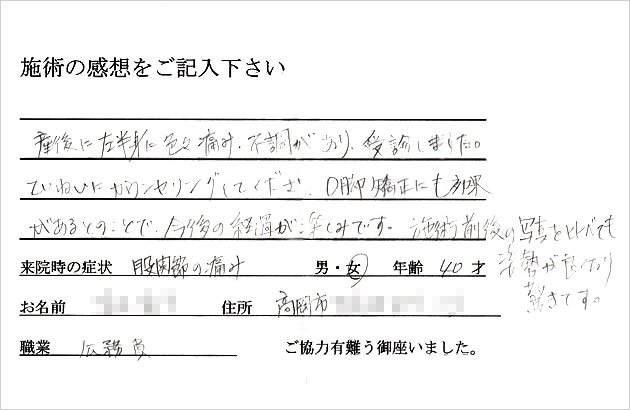 施術の感想をご記入下さい
産後に左半身に色々痛み、不調があり、受診しました。
ていねいにカウンセリングしてくださ、O脚矯正にも効果
があるとのことで、今後の経過が楽しみです。施術前後の写真を比べても
姿勢が良くなり
驚きです。
来院時の症状 股関節の痛み 男・女 年齢 40 才
お名前 住所 高岡市
職業 公務員 ご協力有難う御座いました。